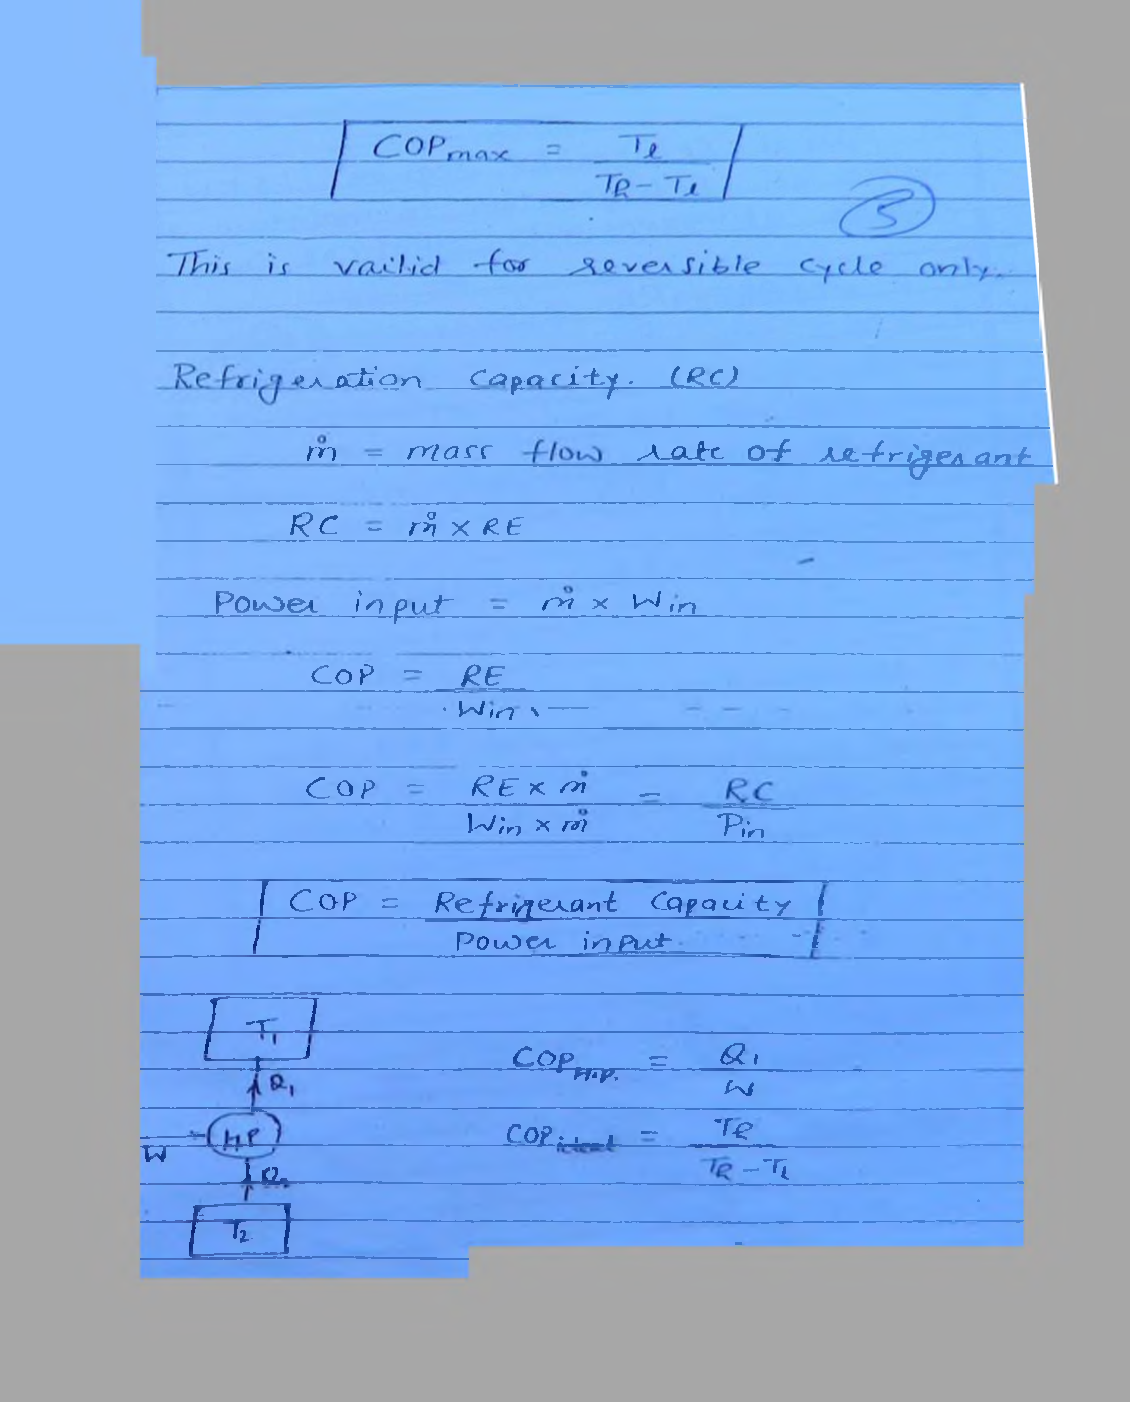 COPmax = Tl / Th - Tl
3
This is vailid for reversible cycle only.
Refrigeration Capacity. (RC)
ṁ = mass flow rate of refrigerant
RC = ṁ x RE
Power input = ṁ x Win
COP = RE / Win
COP = RE x ṁ / Win x ṁ = RC / Pin
COP = Refrigerant Capacity / Power input
T1
Q1
COP H.P. = Q1 / W
HP
W
COP = Th / Th - TL
T2